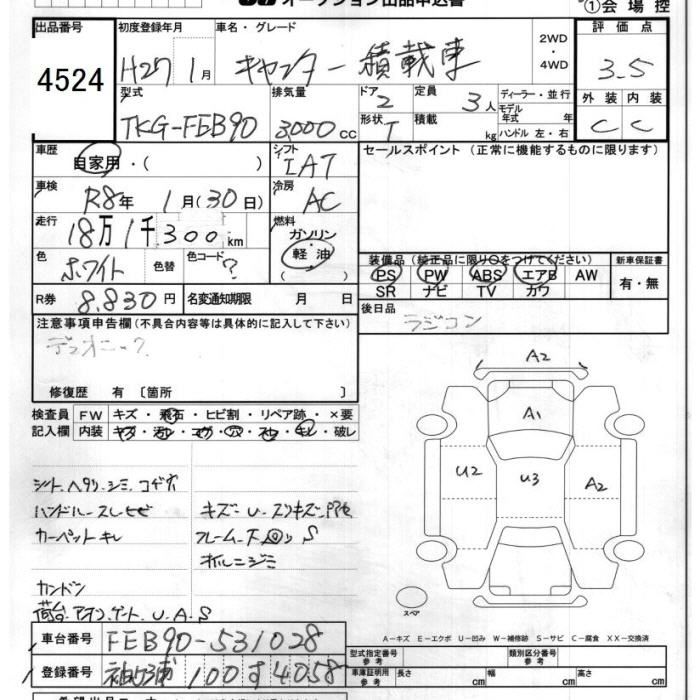 オークション出品申込書
①会場控
出品番号 初度登録年月 車名・グレード 2WD・4WD 評価点
4524 H27 1月 キャンター 積載車 3.5
型式 排気量 ドア 2 定員 3人 ディーラー・並行 外装 内装
TKG-FEB90 3000cc 形状 T 積載 kg モデル年式 年式 ハンドル 左・右 C C
車歴 自家用・( ) シフト IAT セールスポイント (正常に機能するものに限ります)
車検 R8年 1月(30日) 冷房 AC
走行 18万1千300km 燃料 ガソリン 軽油 ( )
色 ホワイト 色替 色コード ?
装備品(純正品に限り○をつけてください) 新車保証書
PS PW ABS エアB AW 有・無
SR ナビ TV カワ
R券 8,830円 名変通知期限 月 日
後日品 ラジコン
注意事項申告欄(不具合内容等は具体的に記入して下さい)
修復歴 有 〔箇所 〕
検査員 FW キズ・飛石・ヒビ割・リペア跡・×要
記入欄 内装 キズ・汚レ・コゲ・穴・スレ・キレ・破レ
シート ヘタリ、シミ、コゲ穴
ハンドル スレ ヒビ
カーペット キレ
カンドン
A2
A1
U2 U3 A2
スペア
A-キズ E-エクボ U-凹み W-補修跡 S-サビ C-腐食 XX-交換済
車台番号 FEB90-531028
登録番号 袖ヶ浦 100 す 4058
型式指定番号 参考 類別区分番号 参考
車庫証明用 参考 長さ cm 幅 cm 高さ cm